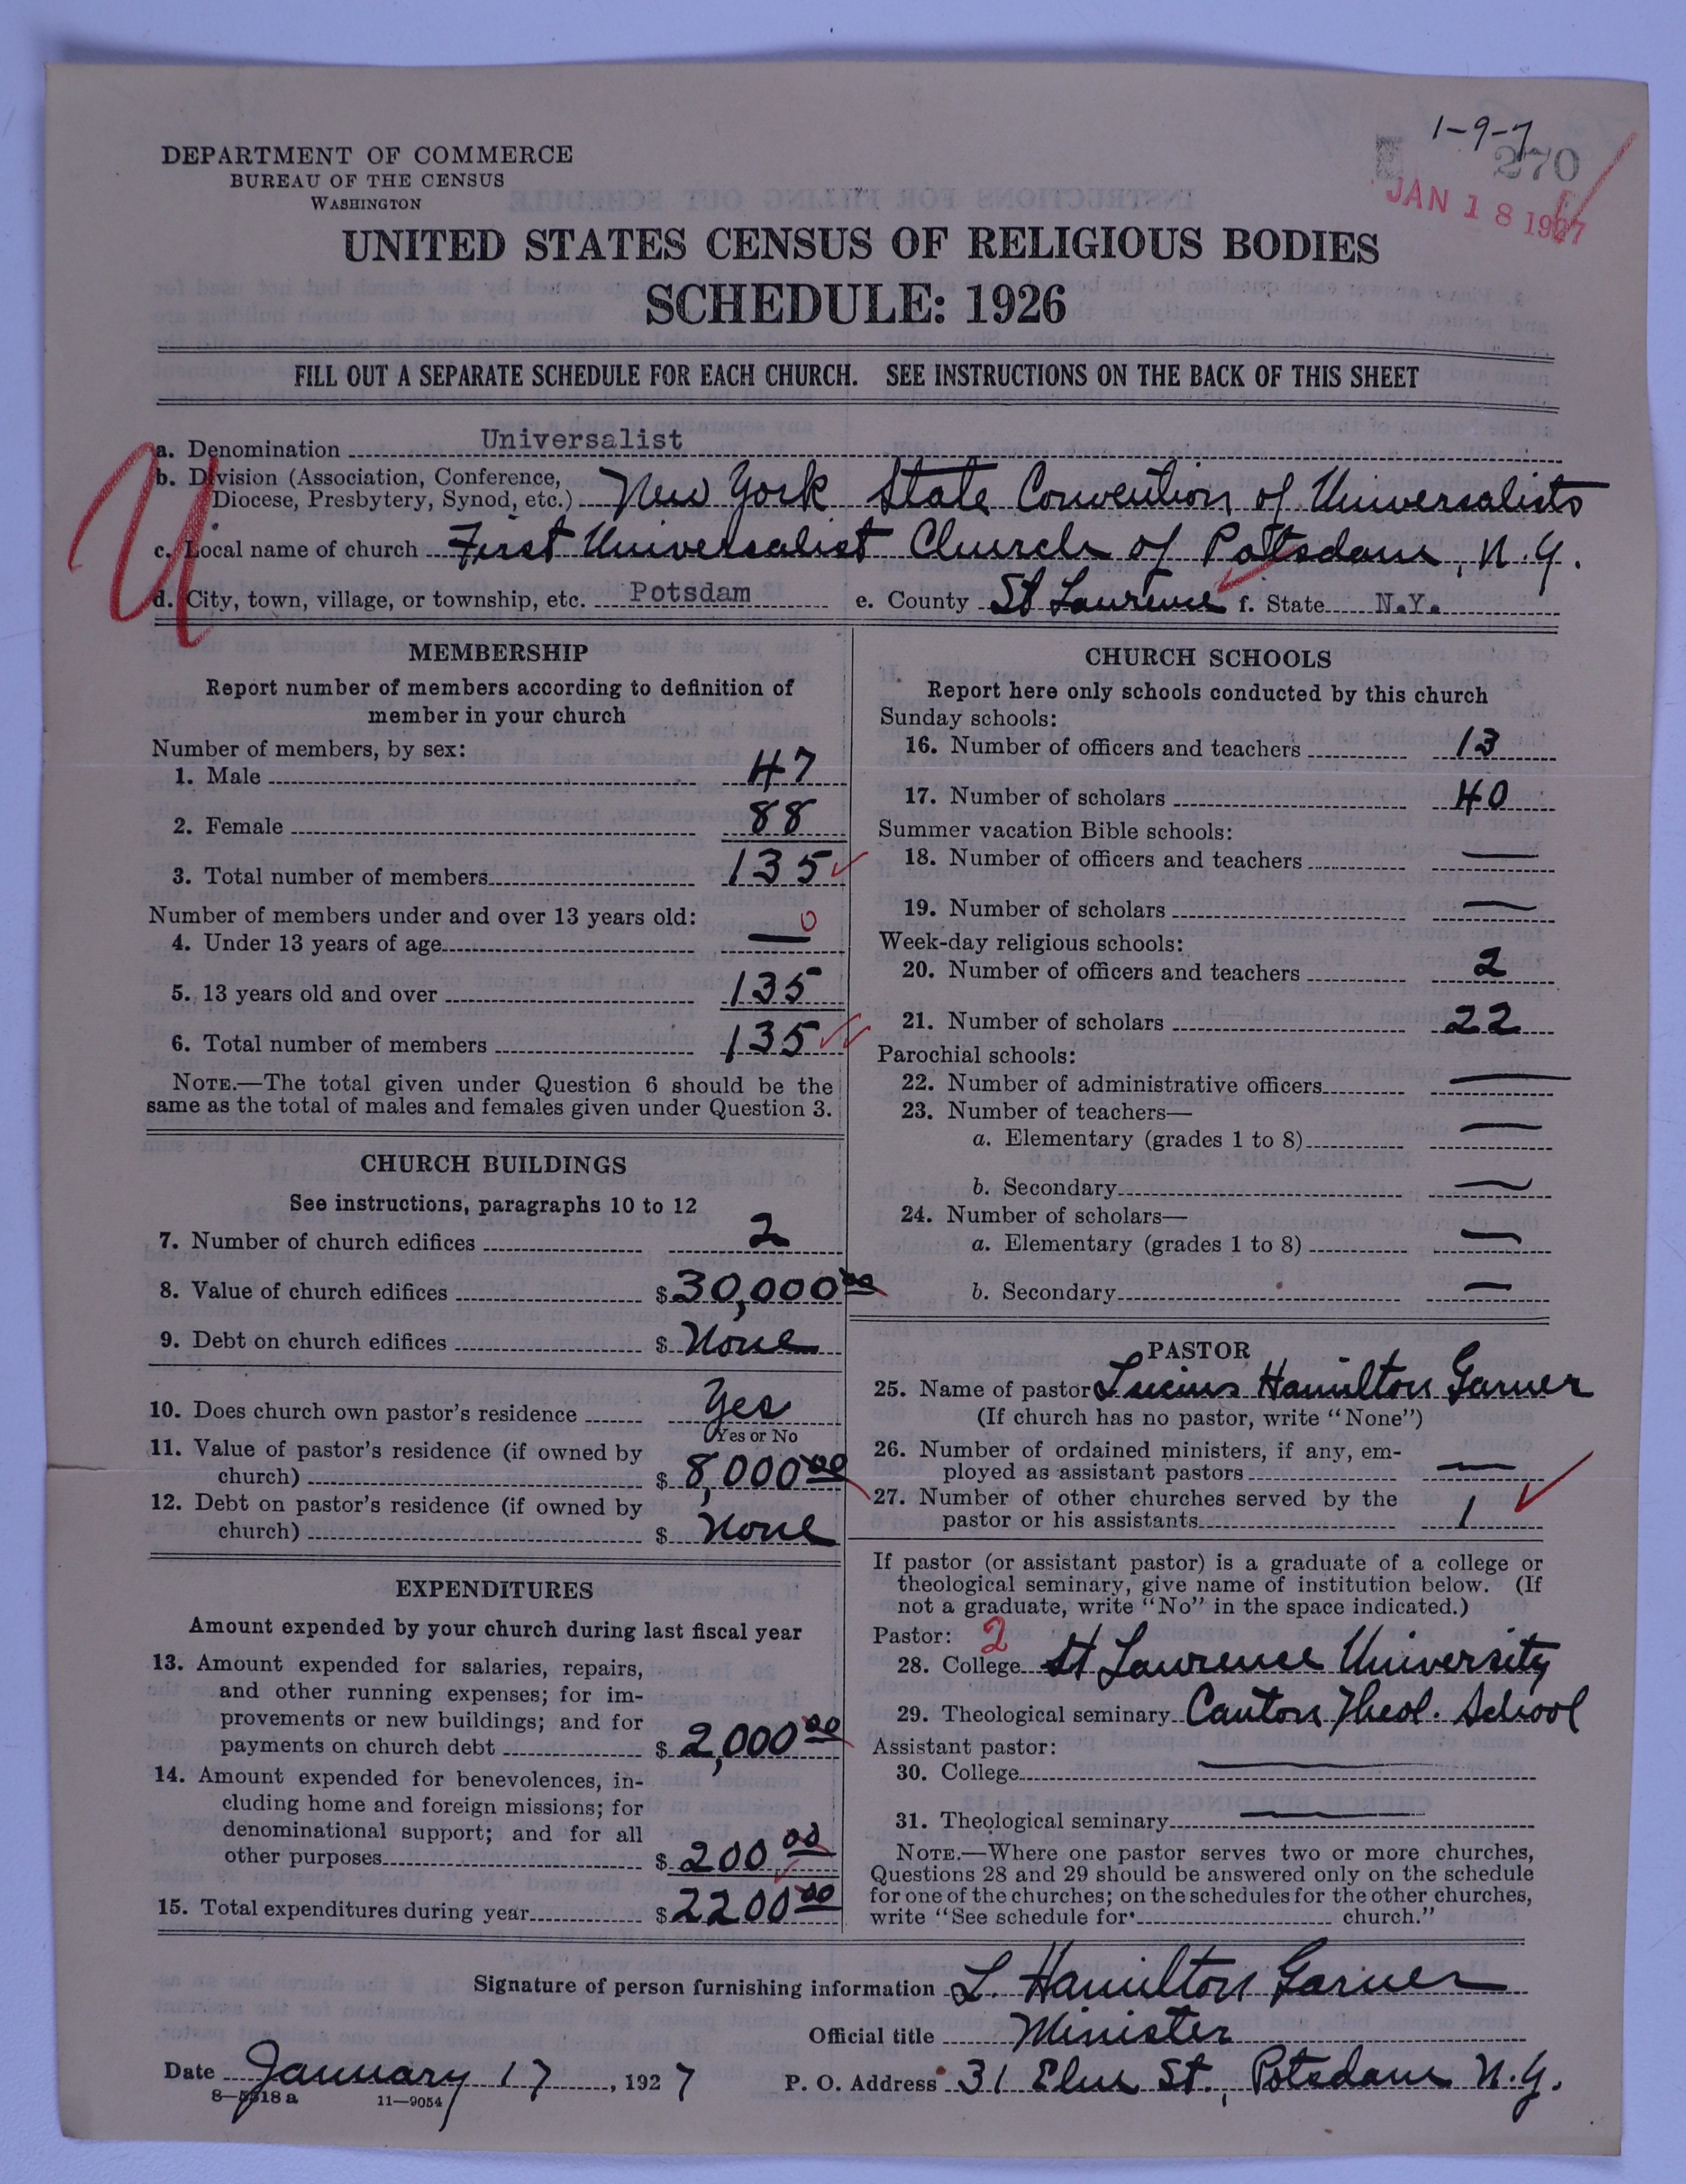 1-9-7
270
JAN 18 1927
DEPARTMENT OF COMMERCE
BUREAU OF THE CENSUS
WASHINGTON
UNITED STATES CENSUS OF RELIGIOUS BODIES
SCHEDULE: 1926
FILL OUT A SEPARATE SCHEDULE FOR EACH CHURCH. SEE INSTRUCTIONS ON THE BACK OF THIS SHEET
U
a. Denomination Universalist
b. Division (Association, Conference,
Diocese, Presbytery, Synod, etc.) New York State Convention of Universalists
c. Local name of church First Universalist Church of Pottsdam, N.Y.
d. City, town, village, or township, etc. Potsdam e. County St Lawrence f. State N.Y.
MEMBERSHIP
Report number of members according to definition of
member in your church
Number of members, by sex:
1. Male 47
2. Female 88
3. Total number of members 135
Number of members under and over 13 years old:
4. Under 13 years of age — 0
5. 13 years old and over 135
6. Total number of members 135
NOTE.—The total given under Question 6 should be the
same as the total of males and females given under Question 3.
CHURCH BUILDINGS
See instructions, paragraphs 10 to 12
7. Number of church edifices 2
8. Value of church edifices $ 30,000 00
9. Debt on church edifices $ None
10. Does church own pastor's residence Yes
Yes or No
11. Value of pastor's residence (if owned by
church) $ 8,000 00
12. Debt on pastor's residence (if owned by
church) $ None
EXPENDITURES
Amount expended by your church during last fiscal year
13. Amount expended for salaries, repairs,
and other running expenses; for im-
provements or new buildings; and for
payments on church debt $ 2,000 00
14. Amount expended for benevolences, in-
cluding home and foreign missions; for
denominational support; and for all
other purposes $ 200 00
15. Total expenditures during year $ 2200 00
CHURCH SCHOOLS
Report here only schools conducted by this church
Sunday schools:
16. Number of officers and teachers 13
17. Number of scholars 40
Summer vacation Bible schools:
18. Number of officers and teachers —
19. Number of scholars —
Week-day religious schools:
20. Number of officers and teachers 2
21. Number of scholars 22
Parochial schools:
22. Number of administrative officers —
23. Number of teachers—
a. Elementary (grades 1 to 8) —
b. Secondary —
24. Number of scholars—
a. Elementary (grades 1 to 8) —
b. Secondary —
PASTOR
25. Name of pastor Lucius Hamilton Garner
(If church has no pastor, write "None")
26. Number of ordained ministers, if any, em-
ployed as assistant pastors —
27. Number of other churches served by the
pastor or his assistants 1
If pastor (or assistant pastor) is a graduate of a college or
theological seminary, give name of institution below. (If
not a graduate, write "No" in the space indicated.)
Pastor: 2
28. College St Lawrence University
29. Theological seminary Canton Theol. School
Assistant pastor:
30. College —
31. Theological seminary —
NOTE.—Where one pastor serves two or more churches,
Questions 28 and 29 should be answered only on the schedule
for one of the churches; on the schedules for the other churches,
write "See schedule for church."
Signature of person furnishing information L. Hamilton Garner
Official title Minister
Date January 17, 1927 P. O. Address 31 Elm St., Potsdam N.Y.
8—5518 a 11—9054